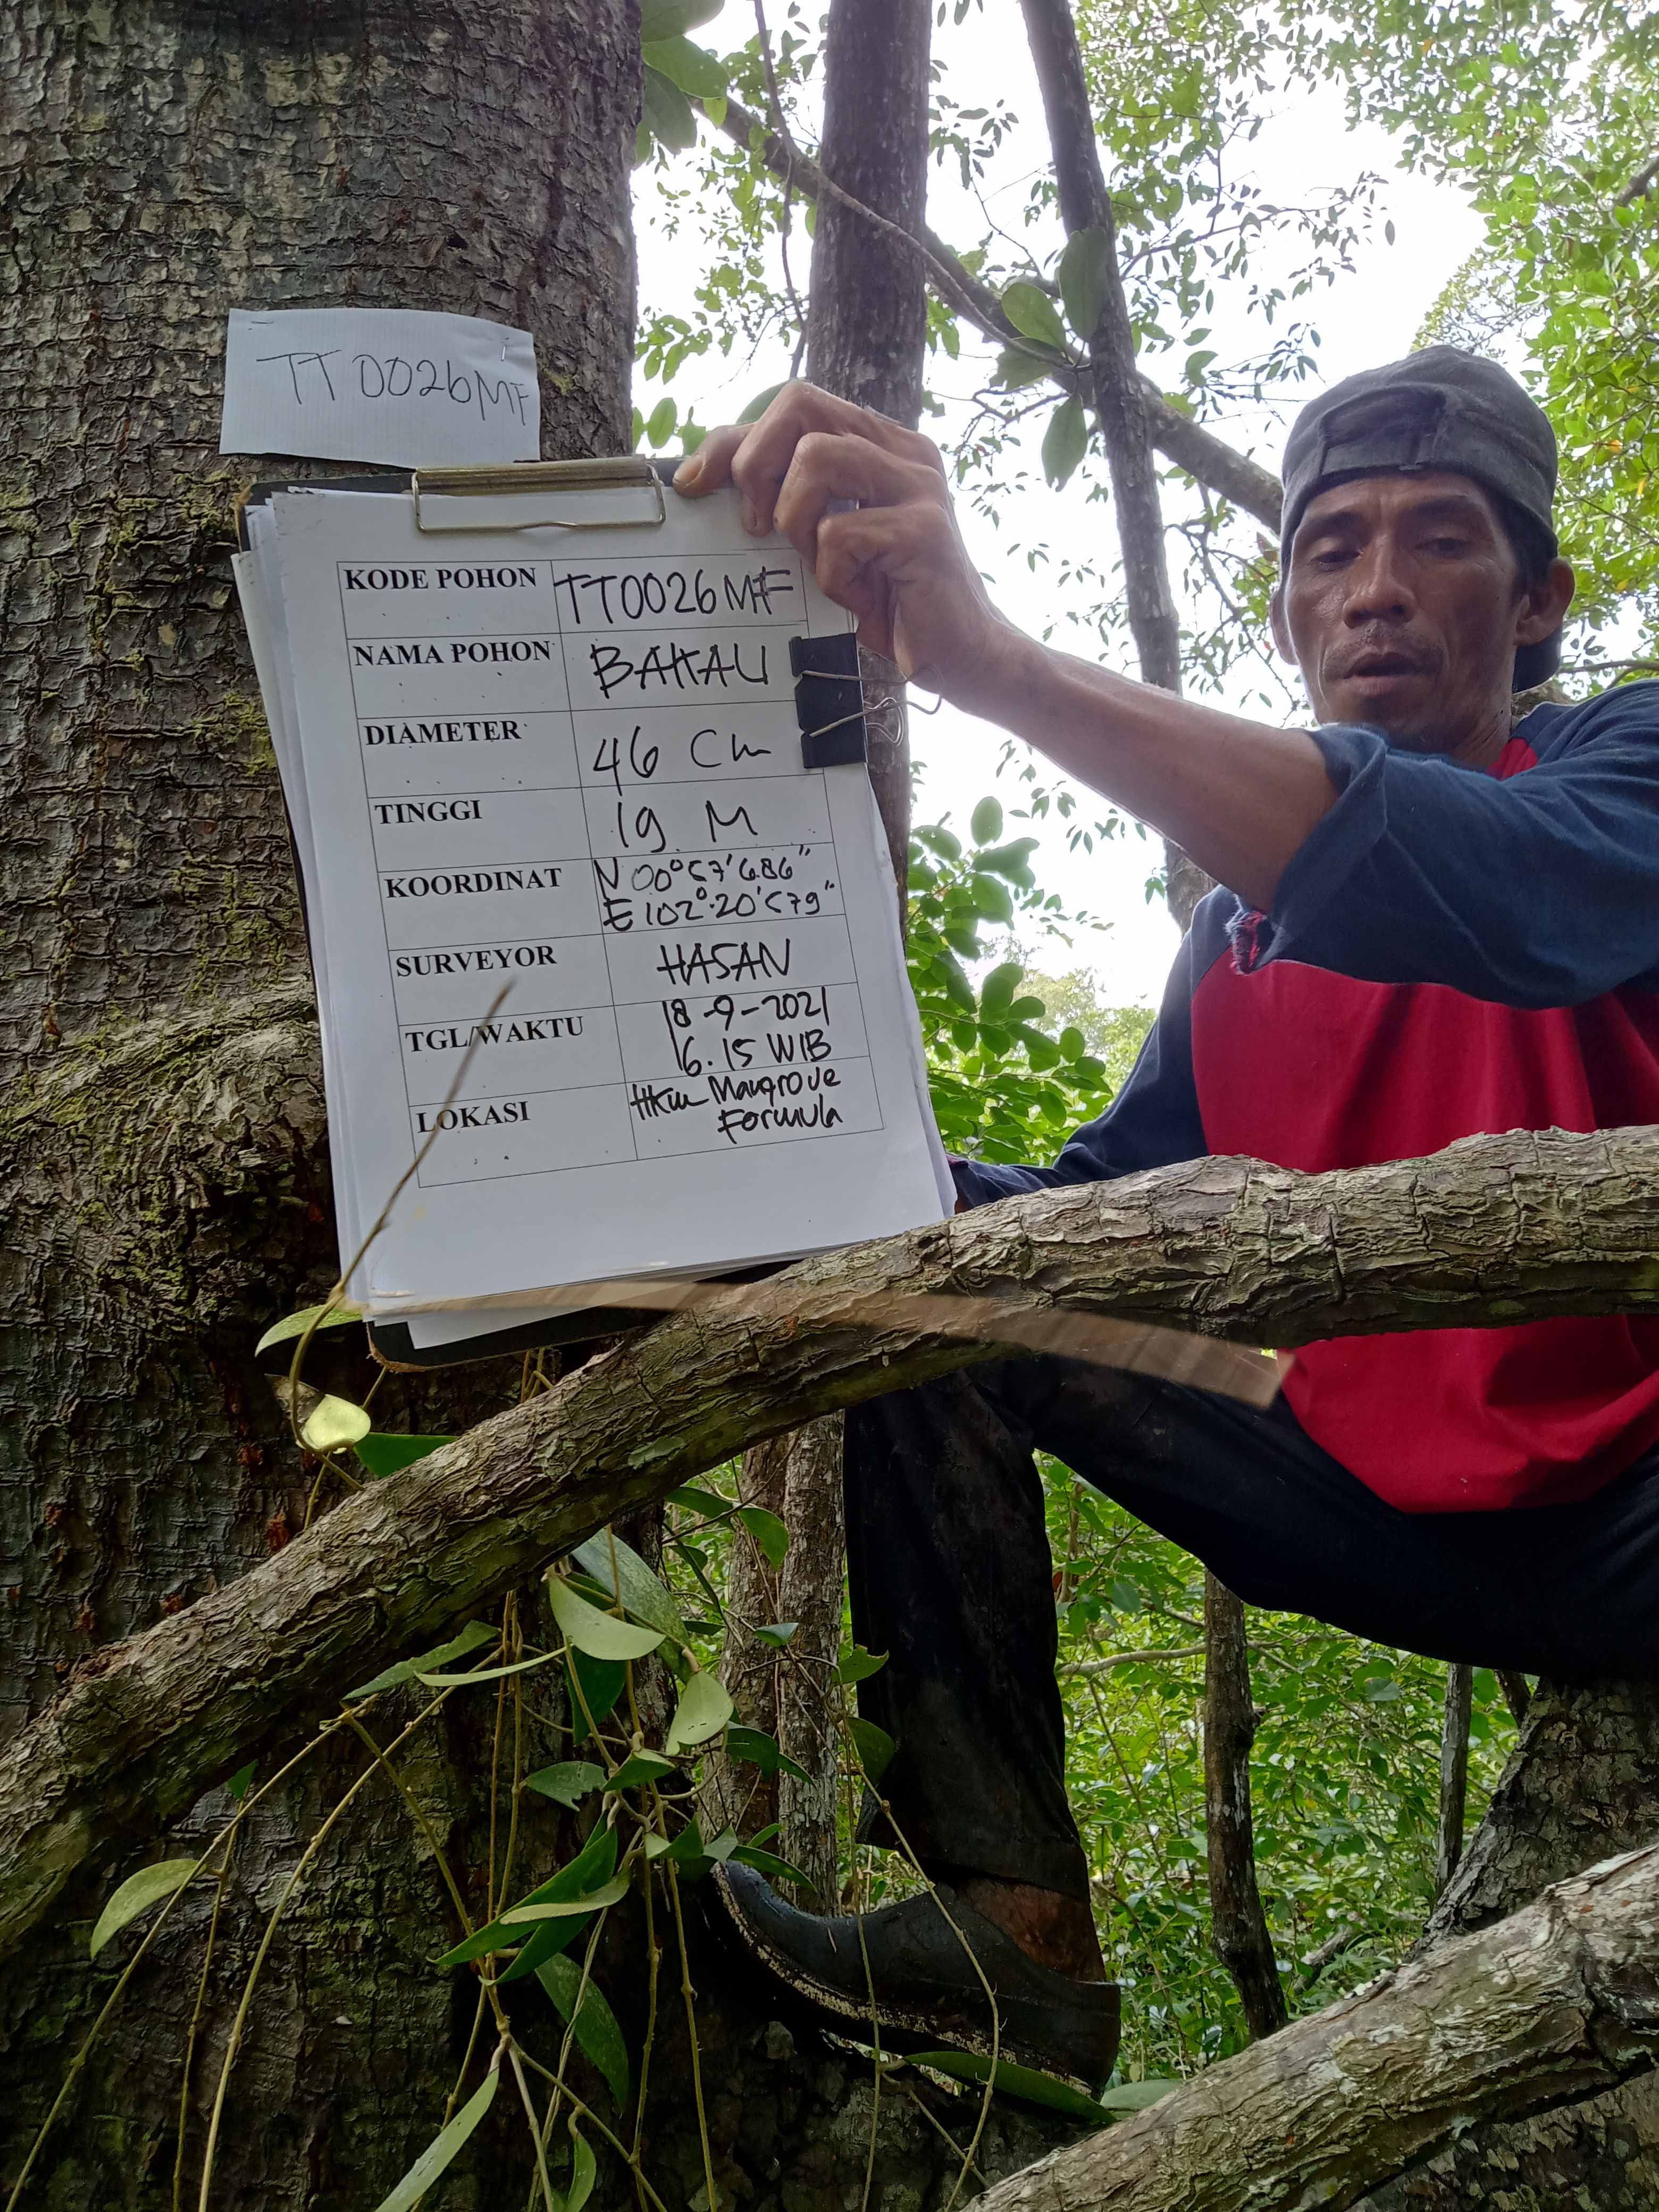 TT0026MF
KODE POHON TT0026MF
NAMA POHON BAKAU
DIAMETER 46 Cm
TINGGI 19 M
KOORDINAT N 00°57'686"
E 102°20'579"
SURVEYOR HASAN
TGL/WAKTU 18-9-2021
16.15 WIB
LOKASI HKm Mangrove
Formula